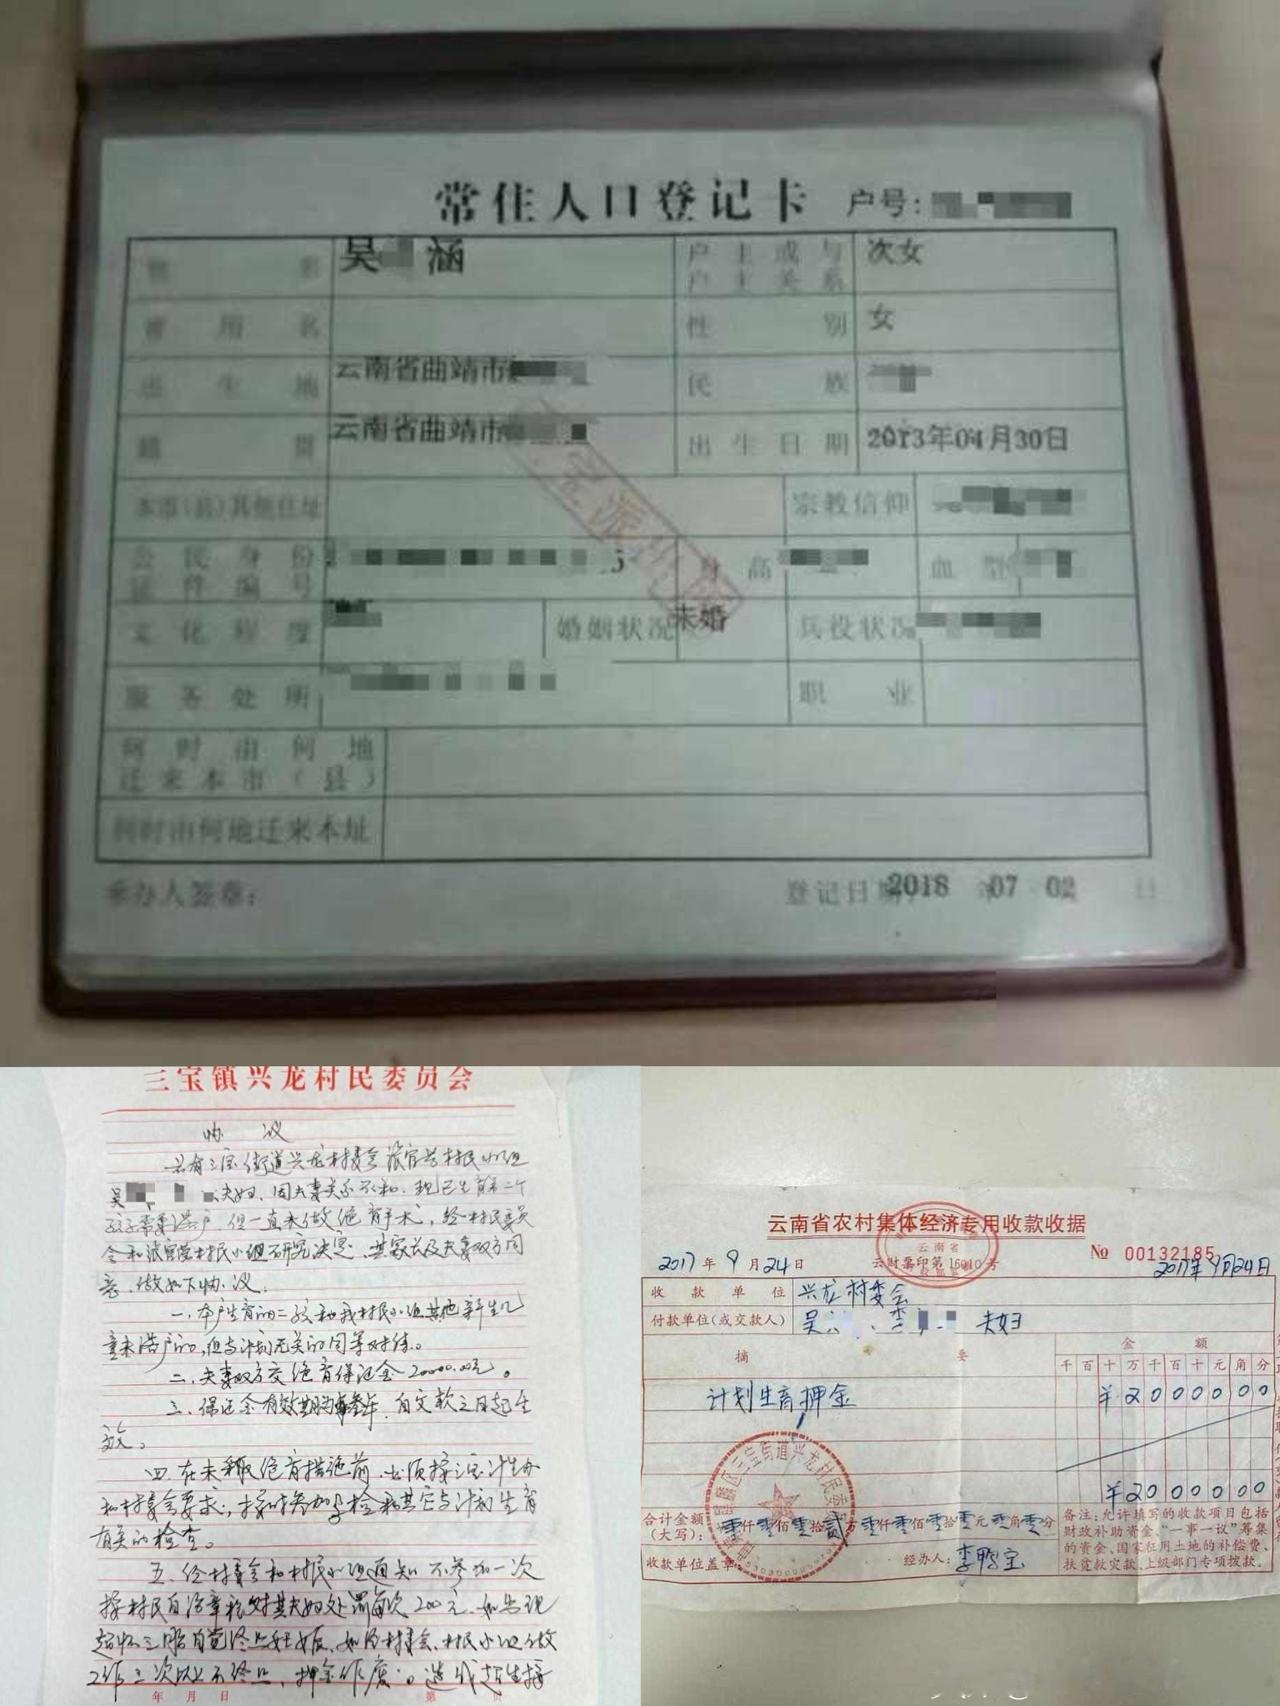 常住人口登记卡 户号:
姓 名 吴 涵 户主或与户主关系 次女
曾用名 性别 女
出生地 云南省曲靖市 民族
籍贯 云南省曲靖市 出生日期 2013年04月30日
本市(县)其他住址 宗教信仰
公民身份证件编号 5 身高 血型
文化程度 婚姻状况 未婚 兵役状况
服务处所 职业
何时由何地迁来本市(县)
何时由何地迁来本址
承办人签章: 登记日期: 2018 年 07 02 日
三宝镇兴龙村民委员会
协 议
兹有三宝街道兴龙村委会张官营村民小组
吴 夫妇,因夫妻关系不和,现已生育第二个
孩子需要落户,但一直未做绝育手术,经村民委员
会和张官营村民小组研究决定,其家长及夫妻双方同
意,做如下协议:
一、本户生育的二孩和我村民小组其他新生儿
童未落户的,但与计划无关的同等对待。
二、夫妻双方交绝育保证金20000.00元。
三、保证金有效期为叁年,自交款之日起生
效。
四、在未采取绝育措施前,必须接三宝计生办
和村委会要求,按时参加孕检和其它与计划生育
有关的检查。
五、经村委会和村民小组通知不参加一次
按村民自治章程对其夫妇处罚每次200元,如出现
超怀三胎自觉终止妊娠,如经村委会、村民小组做
工作三次以上不终止,押金作废。造成超生按
年 月 日 第 页
云南省农村集体经济专用收款收据
云南省
云财票印第16010号
№ 00132185
2017年9月24日 2017年9月24日
收款单位 兴龙村委会
付款单位(或交款人) 吴 、李 夫妇
摘要 金额
千百十万千百十元角分
计划生育押金 ¥2000000
¥2000000
合计金额(大写): 零仟零佰零拾贰万零仟零佰零拾零元零角零分
备注:允许填写的收款项目包括
财政补助资金、“一事一议”筹集
的资金、国家征用土地的补偿费、
扶贫救灾款、上级部门专项拨款。
收款单位盖章: 经办人: